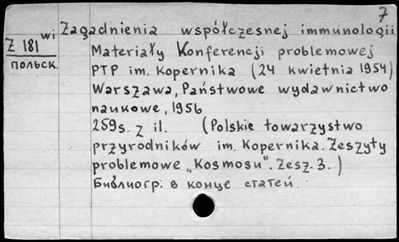 7
wi Zagadnienia współczesnej immunologii
Z 181 Materiały Konferencji problemowej
польск. PTP im. Kopernika (24 kwietnia 1954)
Warszawa, Państwowe wydawnictwo
naukowe, 1956
259s. z il. (Polskie towarzystwo
przyrodników im. Kopernika. Zeszyty
problemowe „Kosmosu". Zesz. 3.)
Библиогр. в конце статей.